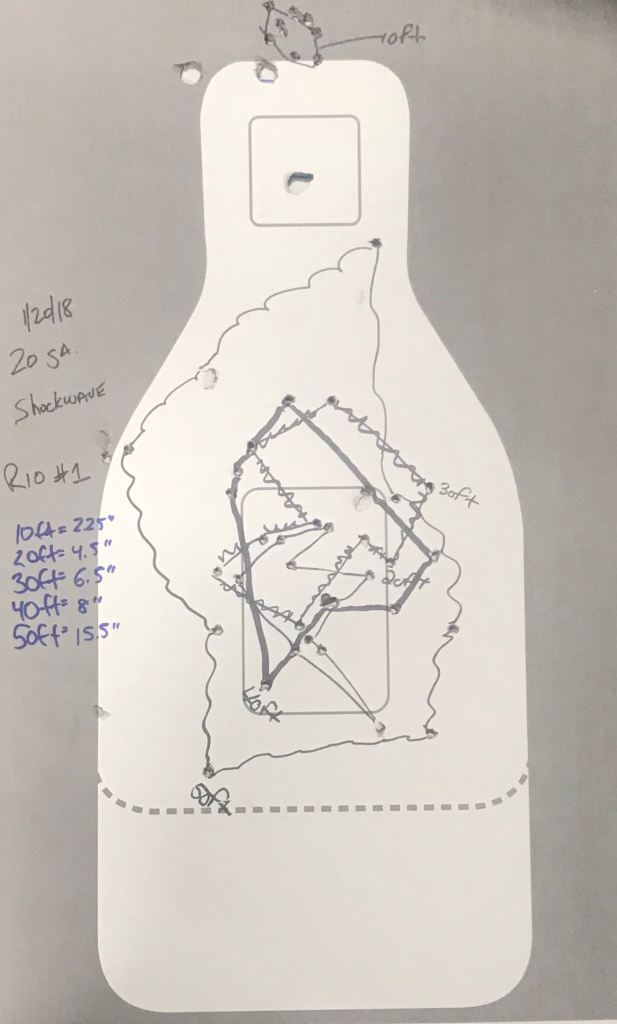 10ft
1/20/18
20 GA.
Shockwave
RIO #1
30ft
10ft = 2.25"
20ft = 4.5"
30ft = 6.5"
40ft = 8"
50ft = 15.5"
20ft
40ft